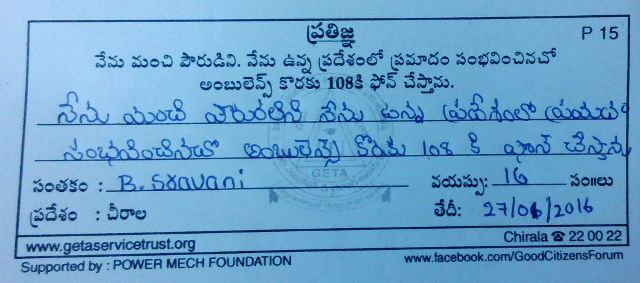 ప్రతిజ్ఞ
P 15
నేను మంచి పౌరుడిని. నేను ఉన్న ప్రదేశంలో ప్రమాదం సంభవించినచో
అంబులెన్స్ కొరకు 108కి ఫోన్ చేస్తాను.
నేను మంచి పౌరురాలిని నేను ఉన్న ప్రదేశంలో ప్రమాదం
సంభవించినచో అంబులెన్స్ కొరకు 108 కి ఫోన్ చేస్తాను
సంతకం : B. Sravani వయస్సు: 16 సం॥లు
ప్రదేశం : చీరాల తేదీ: 27/06/2016
GETA
www.getaservicetrust.org Chirala ☎ 22 00 22
Supported by : POWER MECH FOUNDATION www.facebook.com/GoodCitizensForum